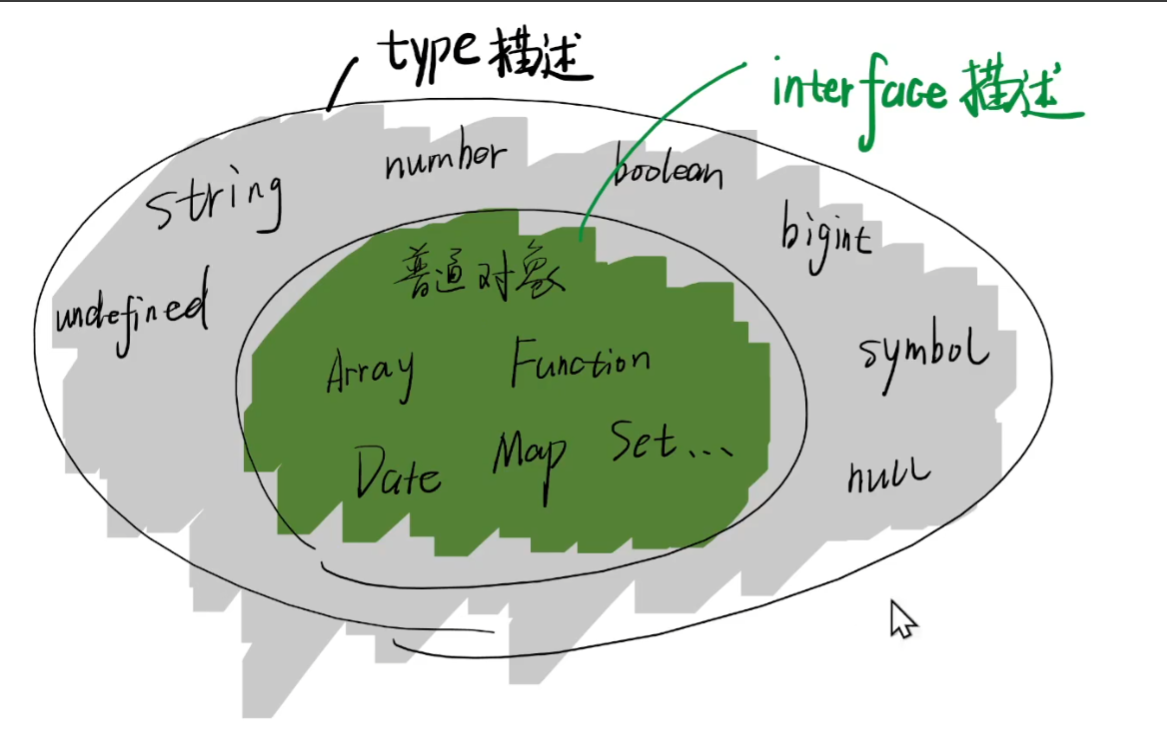 type 描述
interface 描述
string number boolean
bigint
undefined
普通对象
symbol
Array Function
Date Map Set...
null